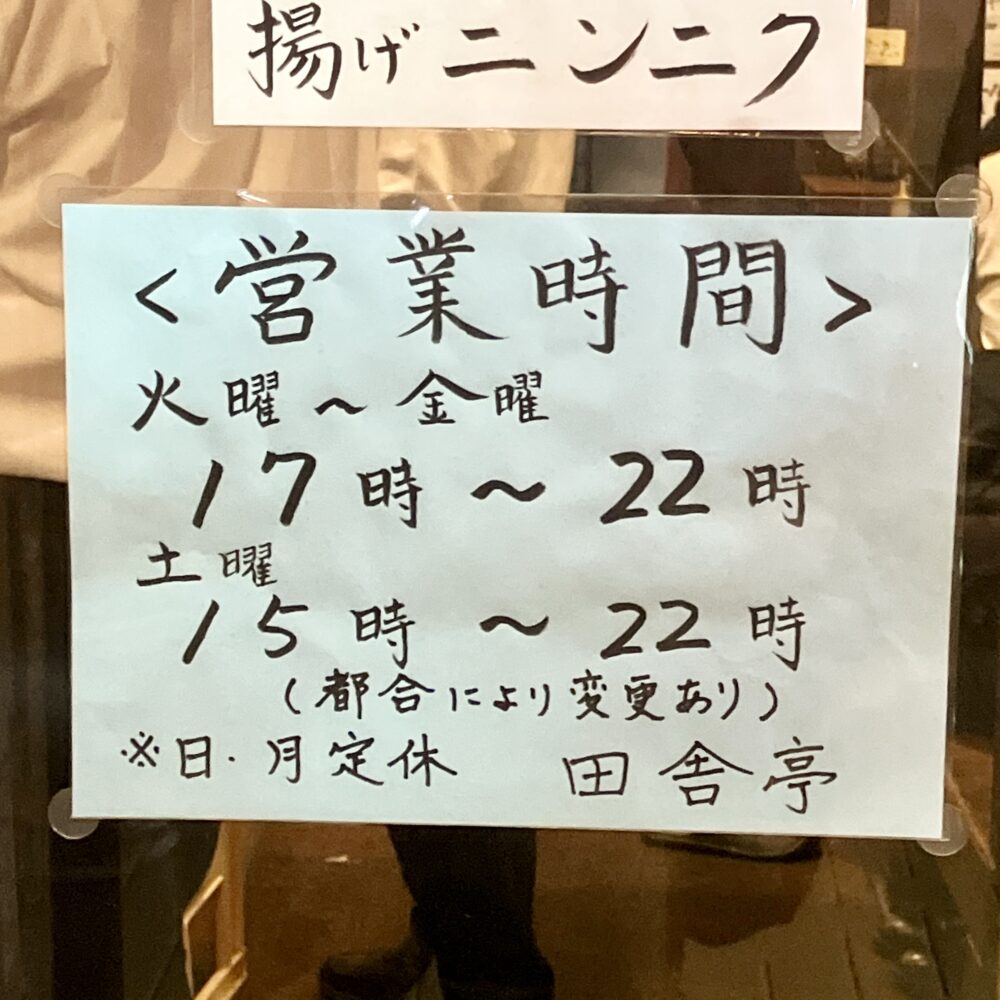 揚げニンニク
<営業時間>
火曜～金曜
17時～22時
土曜
15時～22時
(都合により変更あり)
※日・月定休 田舎亭